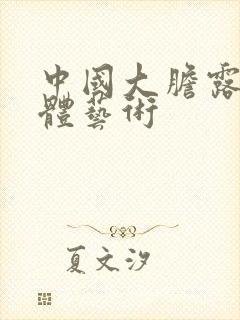 中國大膽露
體藝術
夏文汐